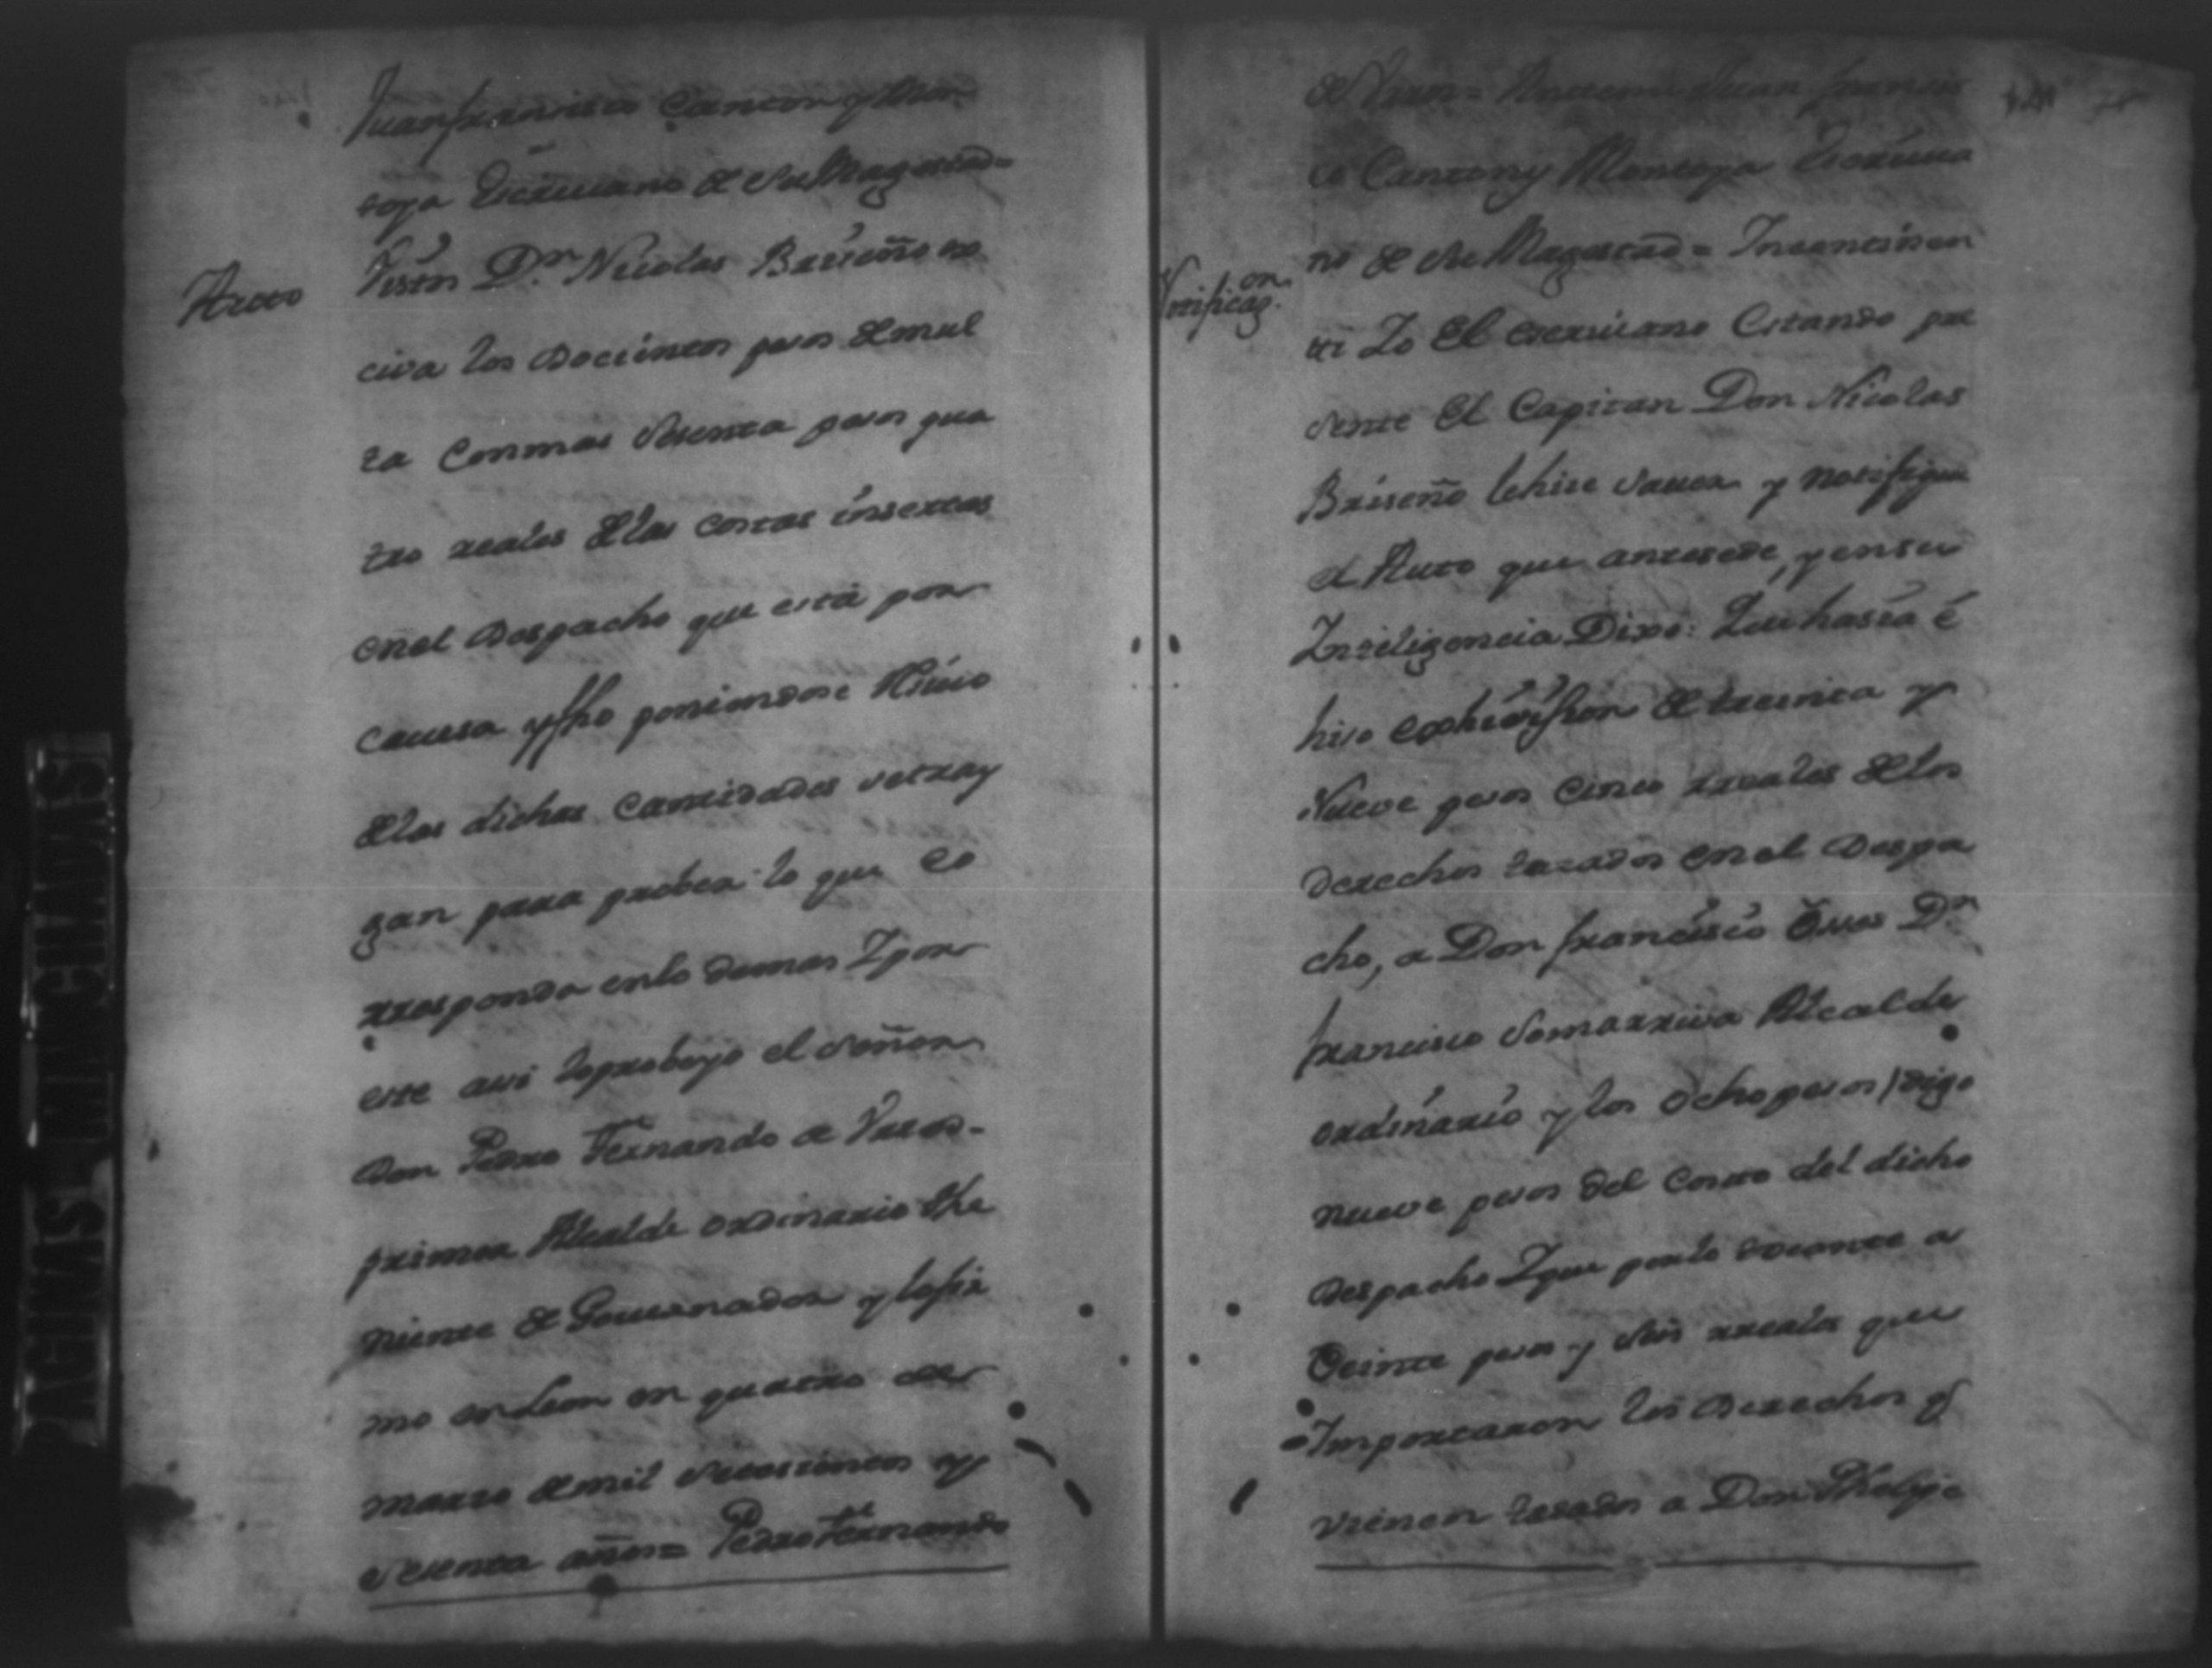 Juan francisco Canton y Mon
toya Escriuano de su Magestad=
Auto
Vistos Dn. Nicolas Briseño
ciua los docientos pesos de mul
ta Con mas sesenta pesos qua
tro reales de las costas insertas
en el despacho que está por
causa y fho poniendose
de las dichas Cantidades se tray
gan para prober lo que Co
rresponda en lo demas Y por
este assi lo probeyo el señor
don Pedro Fernando de
primer Alcalde ordinario the
niente de Gouernador y lo fir
mo en Leon en quatro de
marzo de mil setesientos y
sesenta años= Pedro Fernando
Juan francis
co Canton y Montoya Escriua
no de su Magestad= Incontinen
Notificaz.on
ti Yo El escriuano Estando pre
sente El Capitan Don Nicolas
Briseño le hise sauer y notifique
el Auto que antesede, y en su
Inteligencia Dixo: Que hasia é
hiso exhiuision de treinta y
Nueve pesos Cinco rreales de los
derechos tazados en el despa
cho, a Don francisco Dn.
francisco Somarriua Alcalde
ordinario y los ocho pesos / digo
nueve pesos del Costo del dicho
despacho Y que por lo tocante a
Veinte pesos y seis rreales que
Importaron los derechos q
vienen tazados a Don Phelipe